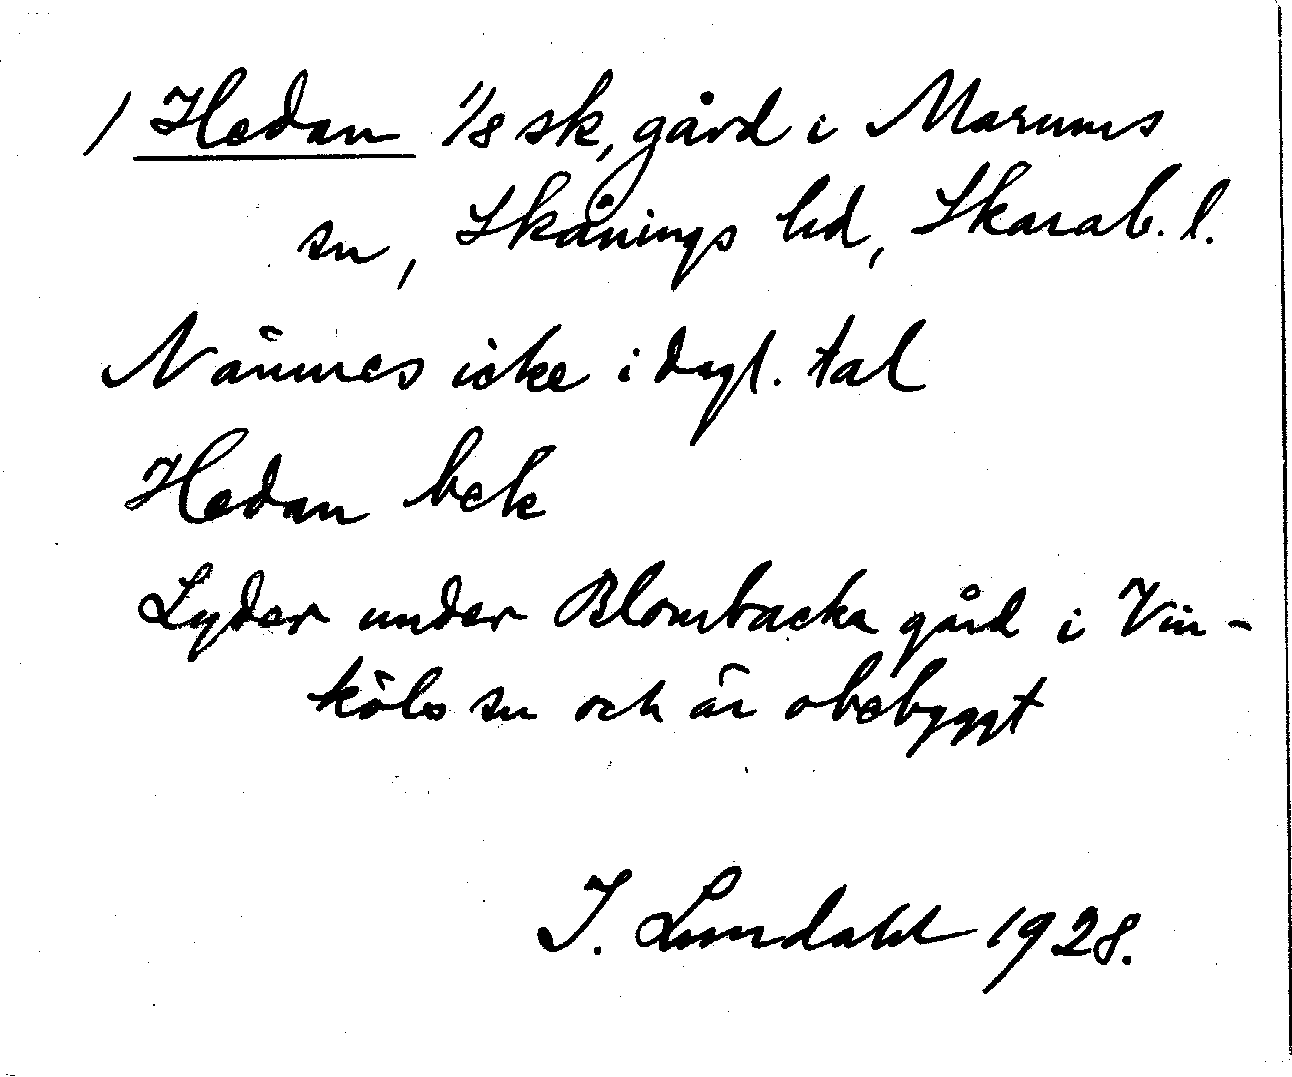 / Hedan 1/8 sk, gård i Marums
sn, Skånings hd, Skarab. l.
Nämnes icke i dagl. tal
Hedan bek
Lyder under Blombacka gård i Vin-
köls sn och är obebyggt
I. Lundahl 1928.